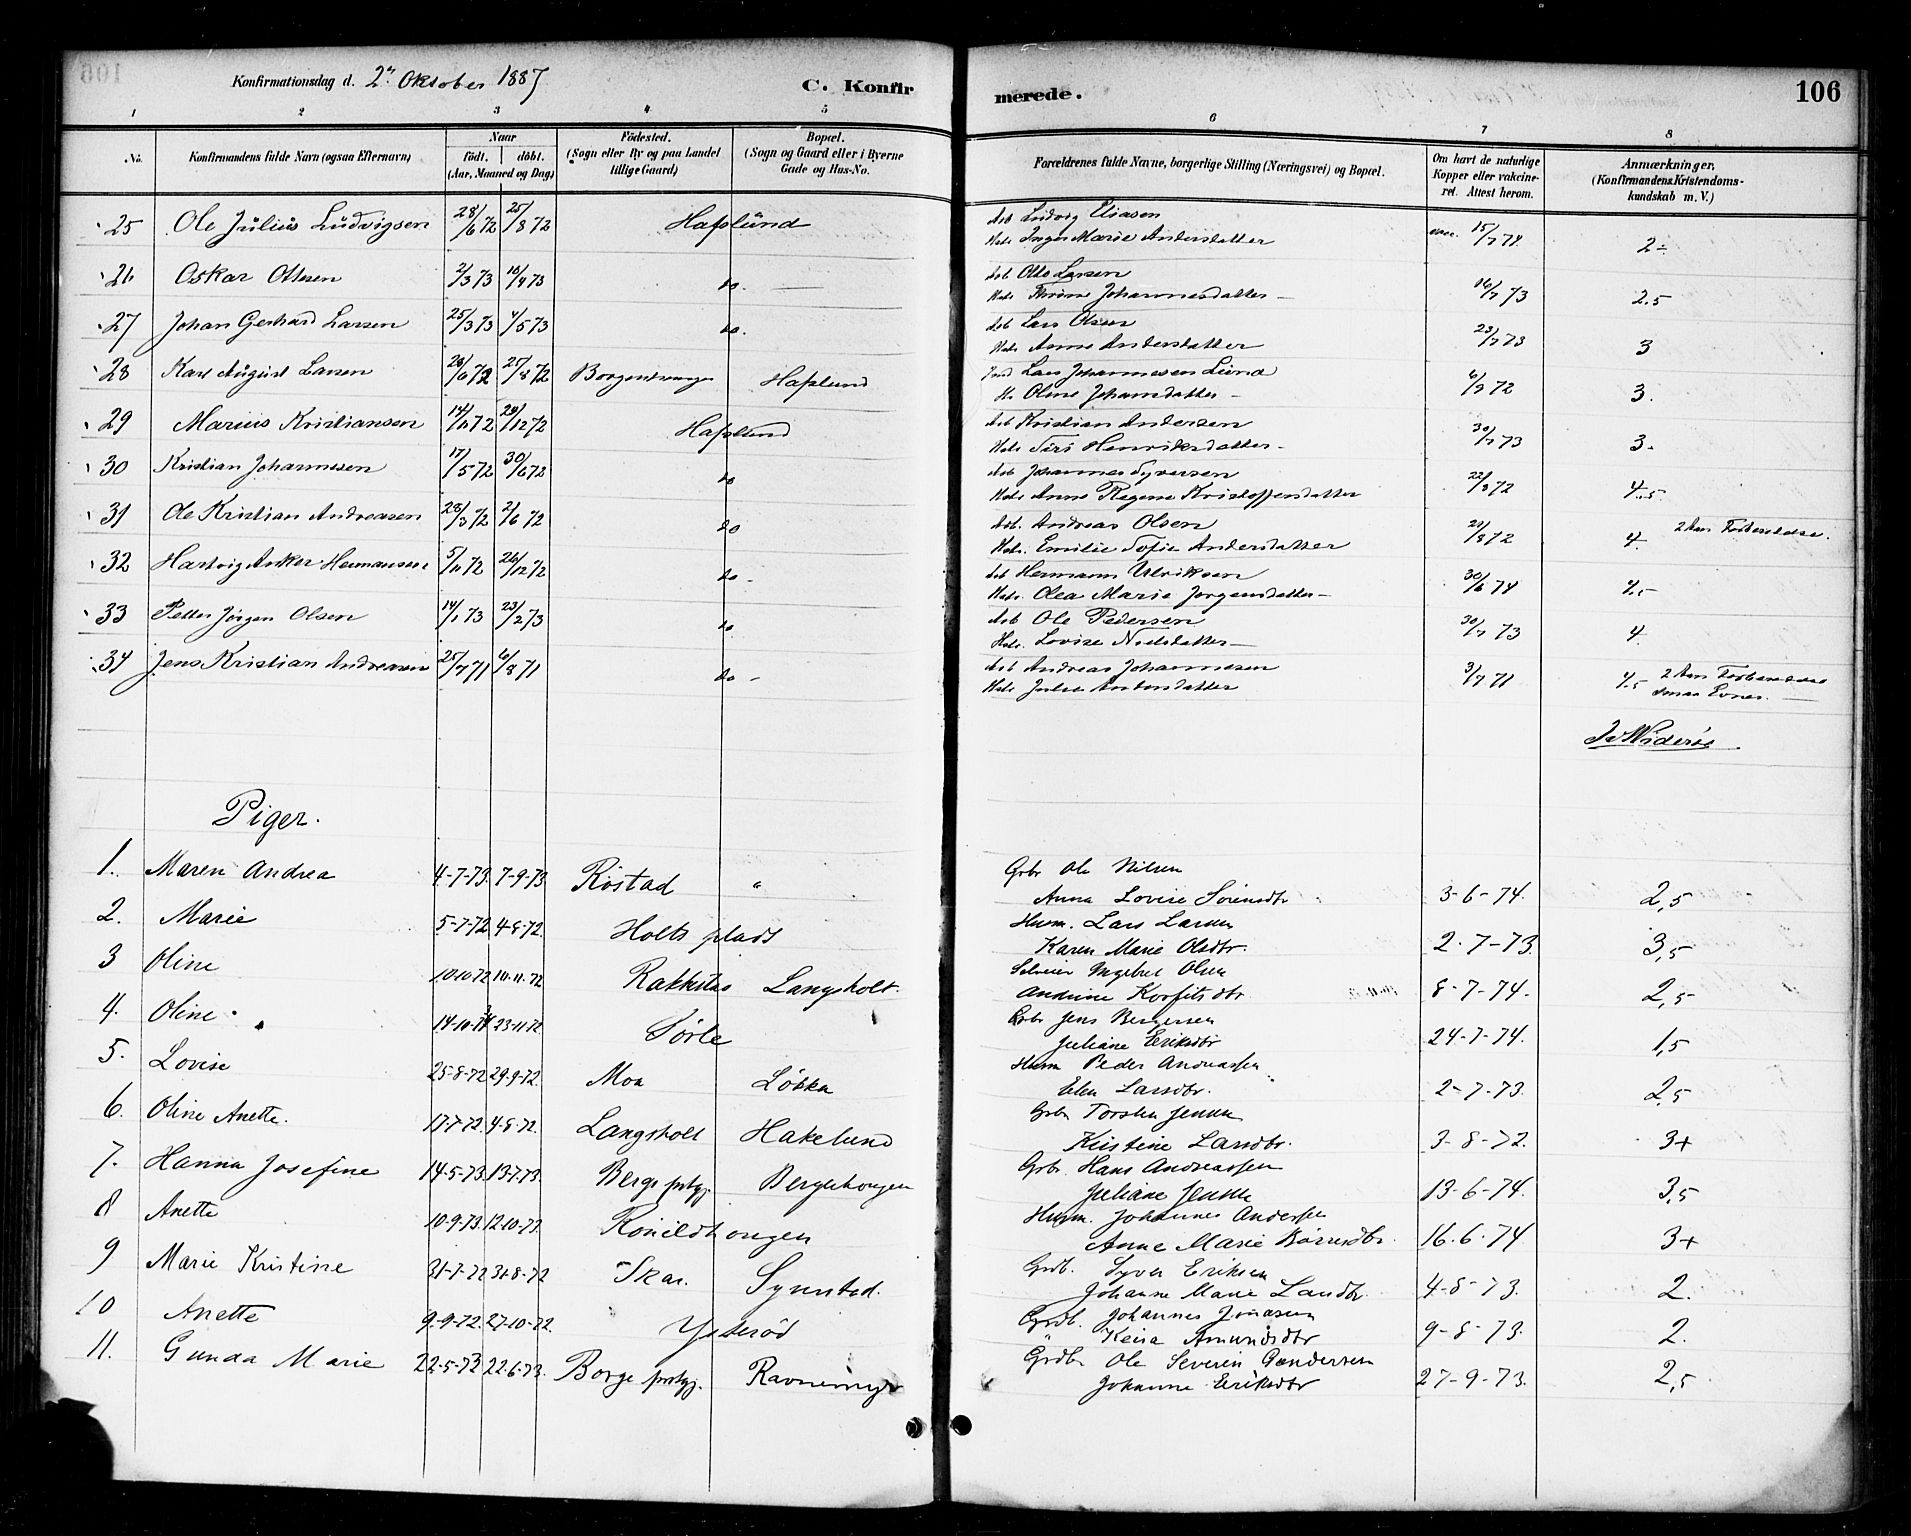 Konfirmationsdag d. 2den Oktober 1887
C. Konfirmerede.
106
1 2 3 4 5 6 7 8
No. | Konfirmandens fulde Navn (ogsaa Efternavn) | Naar födt. döbt. (Aar, Maaned og Dag) | Födested. (Sogn eller By og paa Landet tillige Gaard) | Bopæl. (Sogn og Gaard eller i Byerne Gade og Hus-No. | Forældrenes fulde Navne, borgerlige Stilling (Næringsvei) og Bopæl. | Om havt de naturlige Kopper eller vakcineret. Attest herom. | Anmærkninger, (Konfirmandens Kristendomskundskab m. V.)
25 Ole Julius Ludvigsen 28/6 72 25/8 72 Hafslund Arb Ludvig Eliasen
Inger Marie Andersdatter vacc. 15/7 74 2÷
26 Oskar Ottesen 2/3 73 /4 73 do. Arb Otto Larsen
Johannesdatter 16/7 73 2.5
27 Johan Gerhard Larsen 25/3 73 4/5 73 do. Arb Lars Olsen
Anne Andersdatter 23/7 73 3
28 Karl August Larsen 28/6 72 25/8 72 Hafslund Lars Johannesen Lund
Oline Johansdatter 6/9 72 3.
29 Marius Kristiansen 14/11 72 29/12 72 Hafslund Arb Kristian Andersen
Siri Henriksdatter 30/7 73 3.
30 Kristian Johannesen 17/5 72 30/6 72 do Arb Johannes Syversen
Anne Regine Kristoffersdatter 22/8 72 4.5
31 Ole Kristian Andreasen 28/3 72 2/6 72 do Arb. Andreas Olsen
Emilie Sofie Andersdatter 21/8 72 4. 2 Aars Forberedelse.
32 Hartvig Anker Hermansen 5/11 72 26/12 72 do - Arb Hermann Ulriksen
Olea Marie Jørgensdatter 30/6 74 4.5
33 Petter Jörgen Olsen 14/1 73 23/2 73 do Arb Ole Pedersen
Lovise Nielsdatter 30/7 73 4.
34 Jens Kristian Andreasen 25/7 71 /8 71 do - Arb Andreas Johannesen
Julie Andersdatter 3/7 71 4.5 2 Aars Forberedelse
smaa Evner.
Piger.
1. Maren Andrea 4-7-73. 7-9-73 Röstad " Grbr Ole Nilsen
Anna Lovise Sörensdtr 3-6-74. 2,5
2. Marie 5-7-72 4-8-72. Holts plads Husm. Lars Larsen
Karen Marie Olsdtr. 2-7-73. 3,5
3 Oline 10-10-72 10-11-72 Rakkestad Langsholt. Selveier Ingebret Olsen
Andrine Korfitsdtr. 8-7-74. 2,5
4. Oline 14-10-72 23-11-72 Sörle Grbr Jens Bergersen
Juliane Eriksdtr 24-7-74. 1,5
5. Lovise 25-8-72 29-9-72. Moa Løkka Husm Peder Andreassen
Elen Larsdtr. 2-7-73. 2,5
6. Oline Anette. 17-7-72. 4-8-72. Langsholt Hakelund Grbr Torsten Jensen
Kristine Larsdtr. 3-8-72. 3+
7. Hanna Josefine 14-5-73. 13-7-73. Bergs prstgj. Berghaugen Grbr. Hans Andreassen
Juliane Jensen 13-6-74. 3,5
8 Anette 10-9-73. 12-10-73. Husm. Johannes Andersen
Anne Marie Börresdtr. 16-6-74 3+
9 Marie Kristine 31-7-72 31-8-72 Skar. Synstad. Grdb. Syver Eriksen
Johanne Marie Larsdtr. 4-8-73. 2.
10 Anette 9-9-72. 27-10-72. Ysteröd Grdb. Johannes Jonasen
Amundsdtr 9-8-73. 2.
11. Gunda Marie 22-5-73 22-6-73. Borge prstgj. Ravnemyr Grdbr Ole Severin Gundersen
Johanne Eriksdtr 27-9-73. 2,5